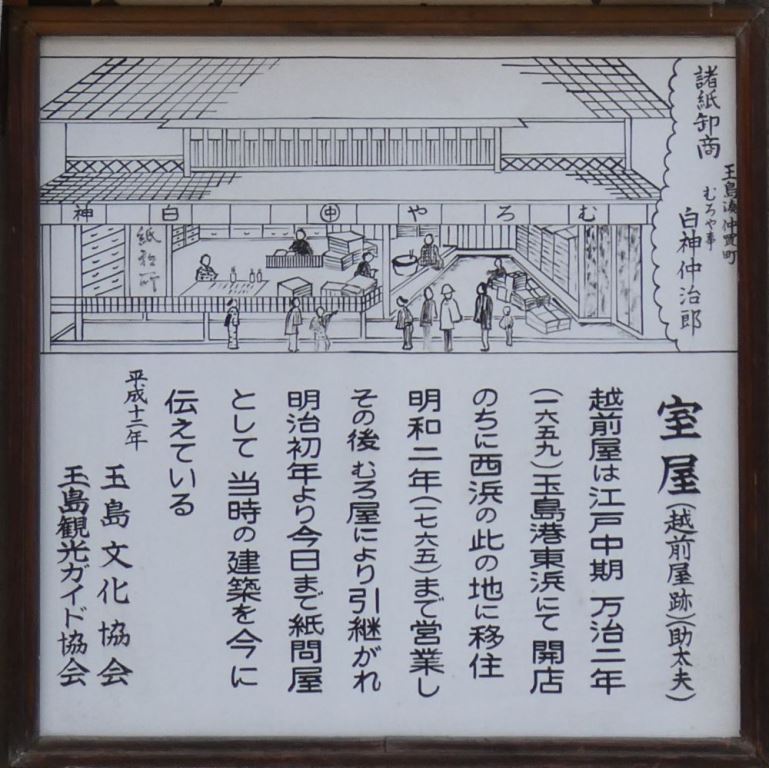 諸紙卸商
玉島湊仲買町
むろや事
白神仲治郎
むろや㊥白神
紙諸所
室屋(越前屋跡)(助太夫)
越前屋は江戸中期 万治二年
(一六五九)玉島港東浜にて 開店
のちに西浜の此の地に移住
明和二年(一七六五)まで営業し
その後 むろ屋により引継がれ
明治初年より今日まで紙問屋
として 当時の建築を今に
伝えている
平成十二年
玉島文化協会
玉島観光ガイド協会